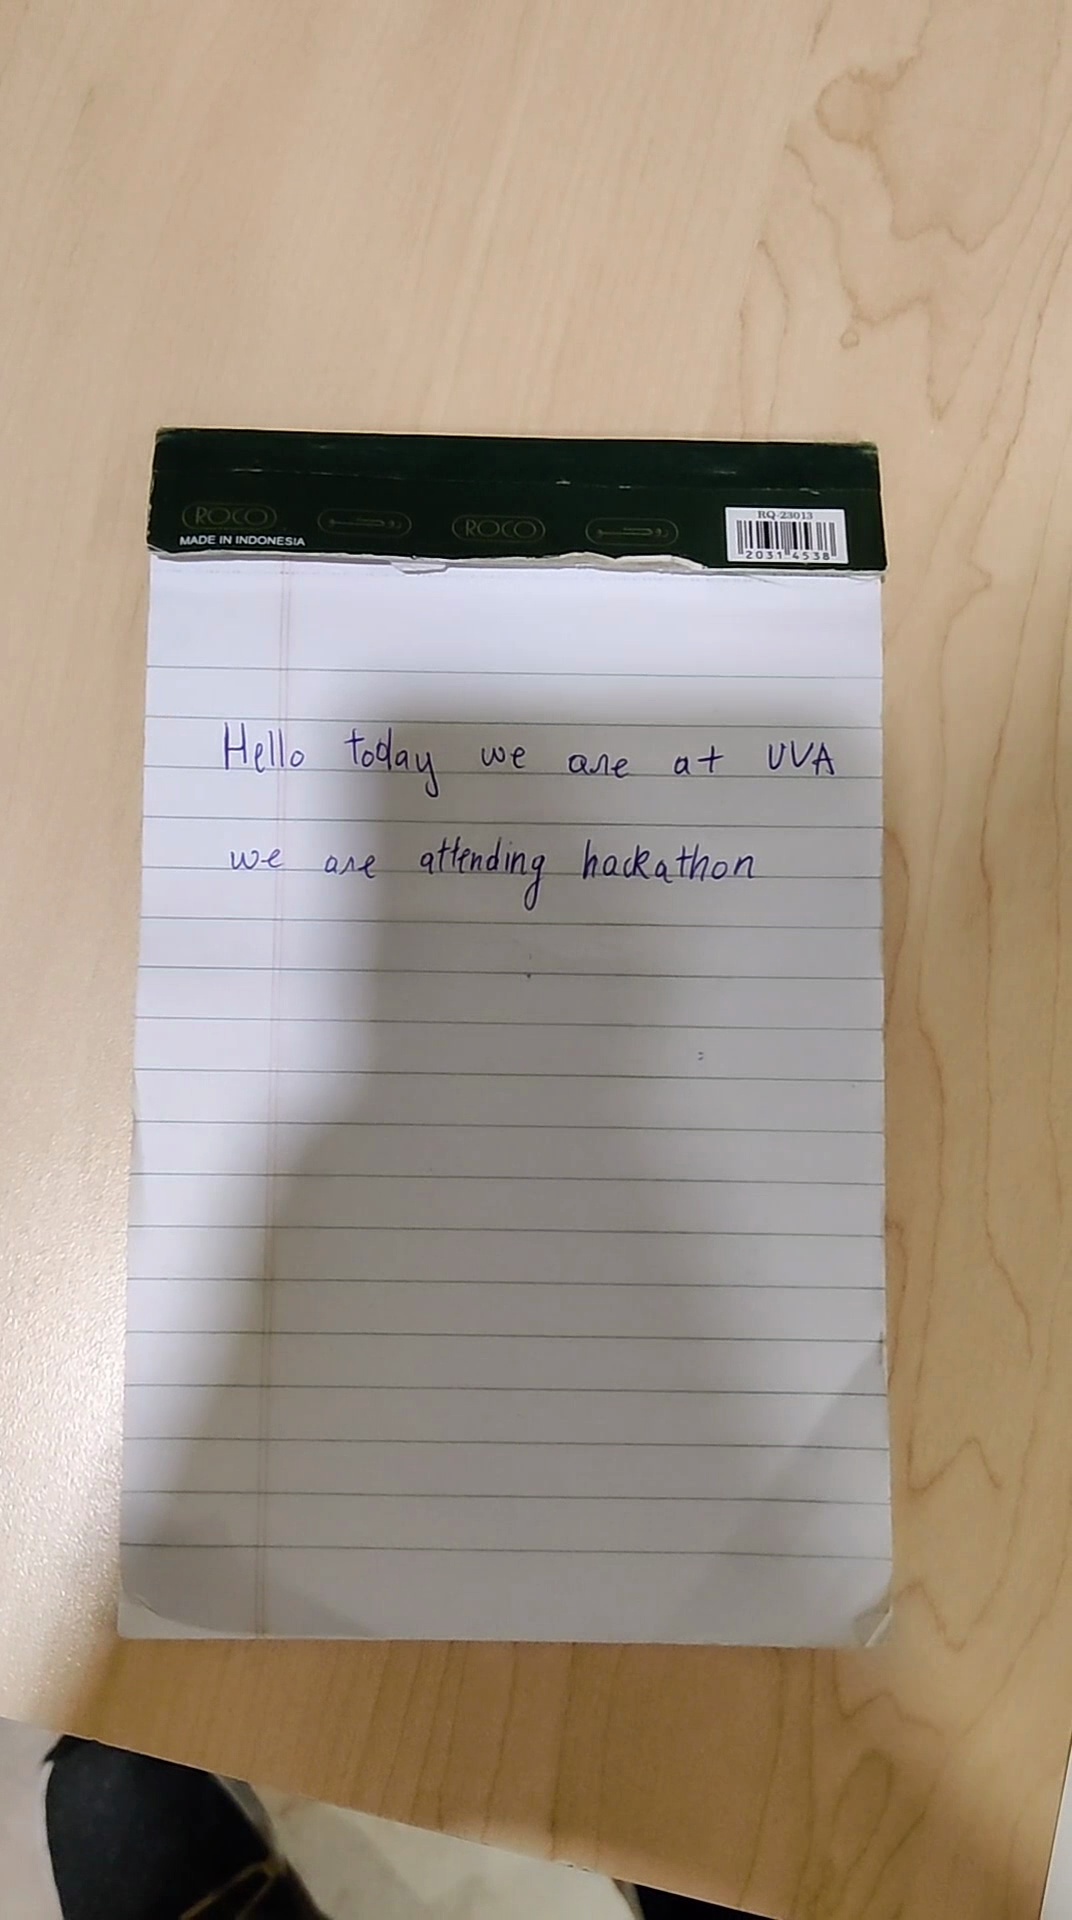 ROCO روكو ROCO روكو
MADE IN INDONESIA
RQ-23013
2031 4538
Hello today we are at UVA
we are attending hackathon